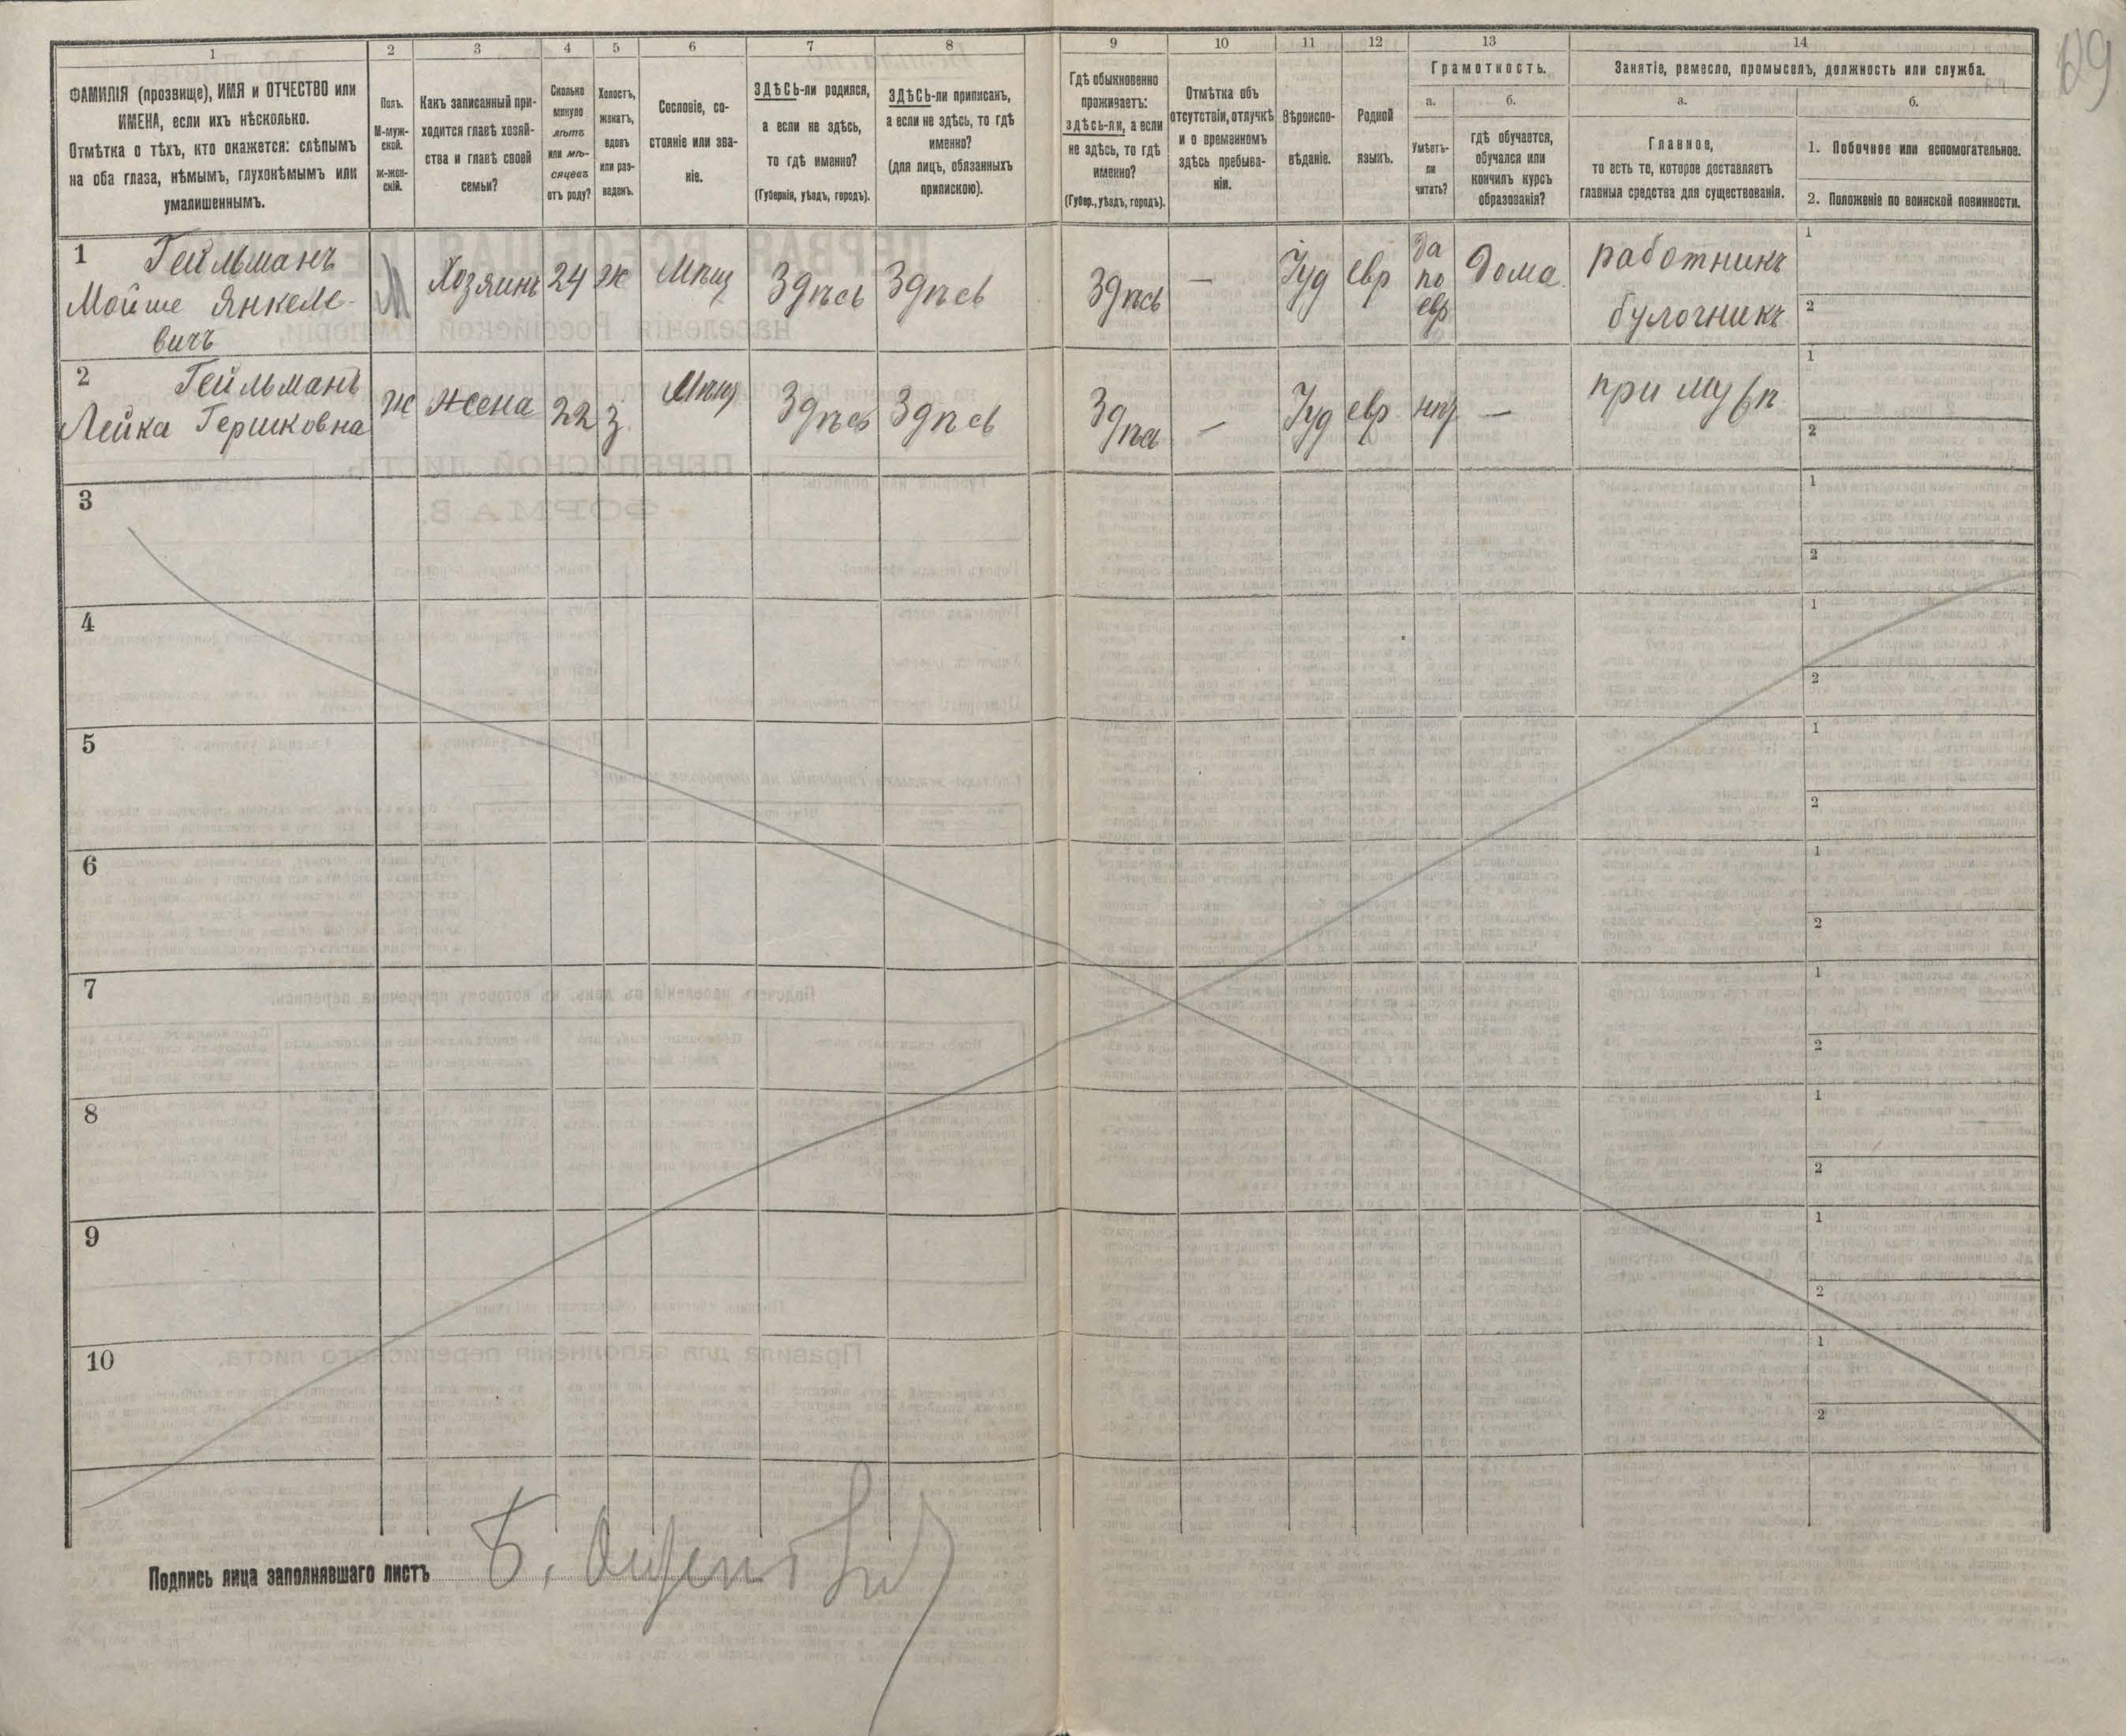 129
1
2
3
4
5
6
7
8
9
10
11
12
13
14
ФАМИЛІЯ (прозвище), ИМЯ и ОТЧЕСТВО или
ИМЕНА, если ихъ нѣсколько.
Отмѣтка о тѣхъ, кто окажется: слѣпымъ
на оба глаза, нѣмымъ, глухонѣмымъ или
умалишеннымъ.
Полъ.
М-муж-
ской.
Ж-жен-
скій.
Какъ записанный при-
ходится главѣ хозяй-
ства и главѣ своей
семьи?
Сколько
минуло
лѣтъ
или мѣ-
сяцевъ
отъ роду?
Холостъ,
женатъ,
вдовъ
или раз-
веденъ.
Сословіе, со-
стояніе или зва-
ніе.
ЗДѢСЬ-ли родился,
а если не здѣсь,
то гдѣ именно?
(Губернія, уѣздъ, городъ).
ЗДѢСЬ-ли приписанъ,
а если не здѣсь, то гдѣ
именно?
(для лицъ, обязанныхъ
припискою).
Гдѣ обыкновенно
проживаетъ:
здѣсь-ли, а если
не здѣсь, то гдѣ
именно?
(Губер., уѣздъ, городъ).
Отмѣтка объ
отсутствіи, отлучкѣ
и о временномъ
здѣсь пребыва-
ніи.
Вѣроиспо-
вѣданіе.
Родной
языкъ.
Грамотность.
а.
Умѣетъ-
ли
читать?
б.
гдѣ обучается,
обучался или
кончилъ курсъ
образованія?
Занятіе, ремесло, промыселъ, должность или служба.
а.
Главное,
то есть то, которое доставляетъ
главныя средства для существованія.
б.
1. Побочное или вспомогательное.
2. Положеніе по воинской повинности.
1 Гейльманъ
Мойше Янкеле-
вичъ
М
Хозяинъ
24
ж
Мѣщ
Здѣсь
Здѣсь
Здѣсь
—
Іуд
евр
да
по
евр
Дома
работникъ
булочникъ
1
2
2 Гейльманъ
Лейка Гершковна
ж
жена
22
з.
Мѣщ
Здѣсь
Здѣсь
Здѣсь
—
Іуд
евр
нѣт
—
при мужѣ
1
2
3
1
2
4
1
2
5
1
2
6
1
2
7
1
2
8
1
2
9
1
2
10
1
2
Подпись лица заполнявшаго листъ